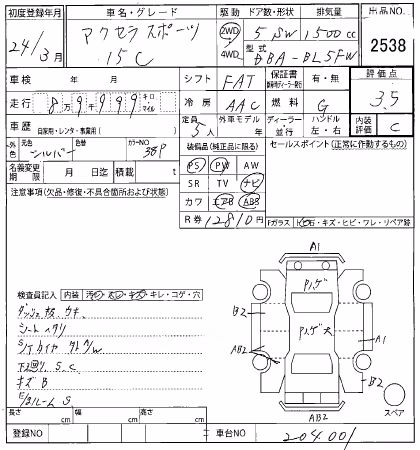 初度登録年月 車名・グレード 駆動 ドア数・形状 排気量 出品NO.
24年3月 アクセラスポーツ 2WD 5 SW 1500cc 2538
15C 4WD 型式 DBA-BL5FW
車検 年 月 シフト FAT 保証書 有・無 評価点
走行 8万9999 キロ・マイル 冷房 AAC 燃料 G 3.5
車歴 自家用・レンタ・事業用( ) 定員 5人 外車モデル 年 ディーラー 並行 ハンドル 左・右 内装評価 C
外色 元色 シルバー 色替 カラーNO 38P 装備品(純正品に限る) セールスポイント(正常に動作するもの)
名義変更期限 月 日迄 積載 t PS PW AW
注意事項(欠品・修復・不具合箇所および状態) SR TV ナビ
カワ エアB ABS
R券 12810円 Fガラス
検査員記入 内装 キレ・コゲ・穴
A1
ハゲ
B2
ハゲ大
AB2
A1
B2
AB2
スペア
シートヘタリ
下回り S.C
キズB
長さ cm 幅 cm 高さ cm
登録NO 車台NO 204001